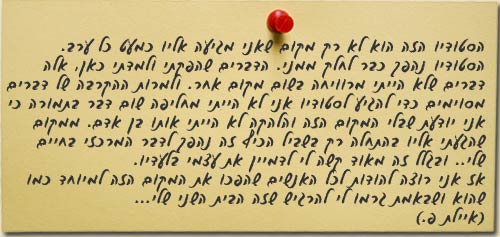 הסטודיו הזה הוא לא רק מקום שאני מגיעה אליו כמעט כל ערב.
הסטודיו נהפך כבר לחלק ממני. הדברים שהפקתי ולמדתי כאן, אלה
דברים שלא הייתי מרוויחה בשום מקום אחר. ולמרות ההקרבה של דברים
מסוימים כדי להגיע לסטודיו אני לא הייתי מחליפה שום דבר בתמורה כי
אני יודעת שבלי המקום הזה והלהקה לא הייתי אותו בן אדם. ממקום
שהגעתי אליו בהתחלה רק בשביל הכיף זה נהפך לדבר המרכזי בחיים
שלי.. ובגלל זה מאוד קשה לי לדמיין את עצמי בלעדיו.
אז אני רוצה להודות לכל האנשים שהפכו את המקום הזה למיוחד כמו
שהוא ושבאמת גרמו לי להרגיש שזה הבית השני שלי...
(איילת פ.)